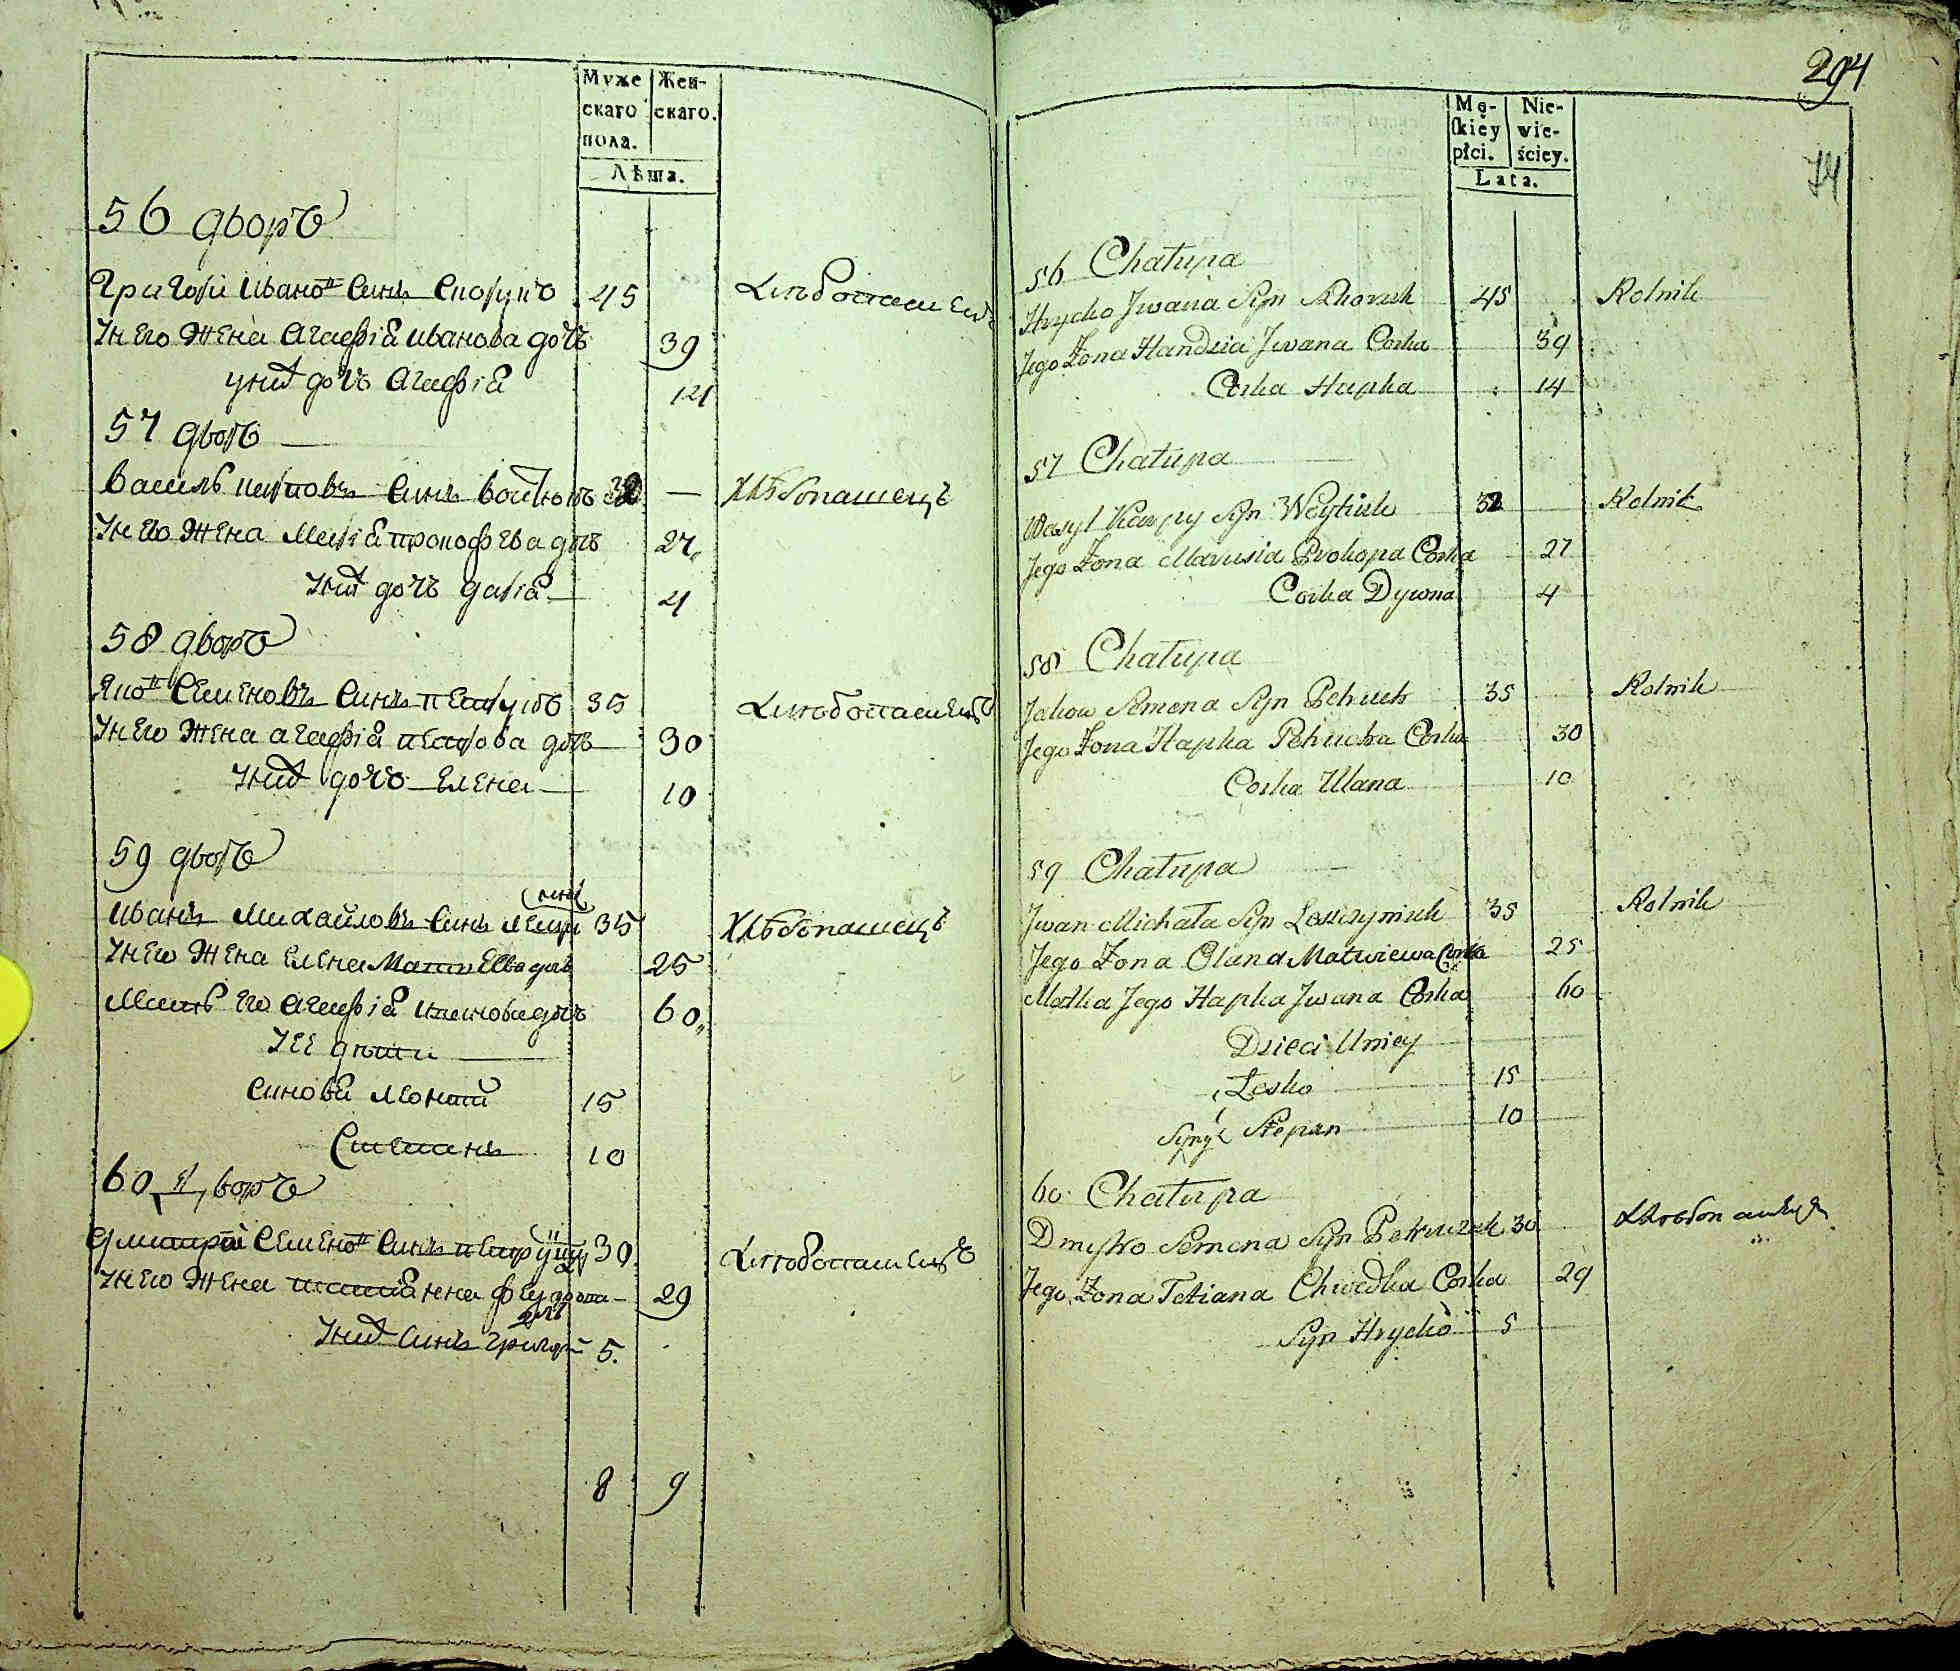 Муже Жен-
скаго скаго.
пола.
Лѣта.
56 дворъ
Григори Ивановъ Синъ 45 Хлѣбопашецъ
У него Жена Агафіа Иванова дочь 39
у них дочь Агафіа 14
57 дворъ
Василь Синъ 32 — Хлѣбопашецъ
У него Жена Маріа Прокофева дочь 27
У них дочь Даріа 4
58 дворъ
Яковъ Семеновъ Синъ 35 Хлѣбопашецъ
У него Жена Агафіа Петрова дочь 30
У них дочь Елена 10
59 дворъ
Иванъ Михайловъ Синъ 35 Хлѣбопашецъ
У него Жена Елена Матвеева дочь 25
Мать его Агафіа Иванова дочь 60
У ее дѣти
Синови Леонтий 15
Степанъ 10
60 дворъ
Дмитрий Семеновъ Синъ 30 Хлѣбопашецъ
У него Жена Татіанна Федорова дочь 29
У них Синъ Григорий 5.
8 9
294
74
Mę- Nie-
ſkiéy wie-
płci. ściey.
Lata.
56 Chałupa
Hrycko Jwana Syn 45 Rolnik
Jego Zona Handzia Jwana Corka 39
Corka Hapka 14
57 Chałupa
Wasyl Karpy Syn Woytiuk 32 Rolnik
Jego Zona Marusia Prokopa Corka 27
Corka Dywna 4
58 Chałupa
Jakow Semena Syn Petruk 35 Rolnik
Jego Zona Hapka Petruka Corka 30
Corka Ulana 10
59 Chałupa
Jwan Michała Syn Leszczyniuk 35 Rolnik
Jego Zona Olana Matwiewa Corka 25
Matka Jego Hapka Jwana Corka 60
Dzieci Uniey
Lesko 15
Syny Stepan 10
60 Chałupa
Dmytro Semena Syn Petruczuk 30
Jego Zona Tetiana Chwedka Corka 29
Syn Hrycko 5